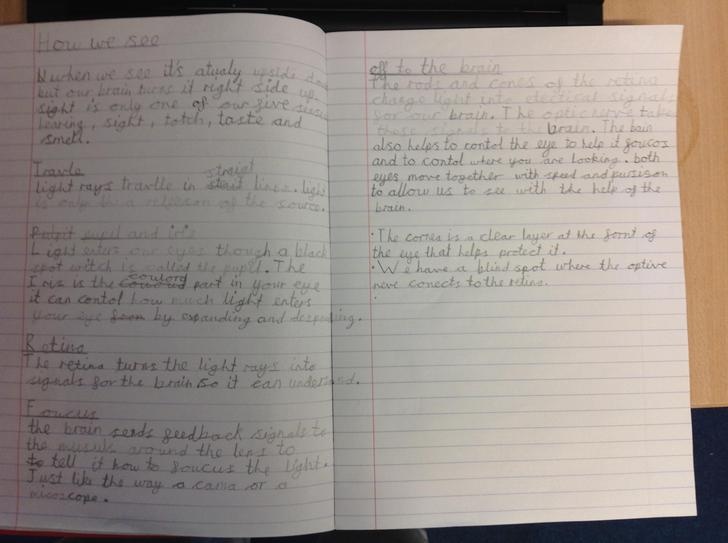 How we see
when we see it's atualy upside
but our brain turns it right side up.
sight is only one of our five
hearing, sight, totch, taste and
smell.
Travle
straigt
light rays travlle in lines. light
is only be a reflecson of the source.
pupil and iris
Light enters our eyes though a black
spot witch is called the pupil. The
coulord
Iris is the part in your eye
it can contol how much light enters
your eye by expanding and
Retina
The retina turns the light rays into
signals for the brain so it can understand.
Foucus
the brain sends feedback signals to
the around the lens to
to tell it how to foucus the light.
Just like the way a cama or a
micoscope.
off to the brain
The rods and cones of the retina
change light into electical signals
for our brain. The optic nerve take
these signals to the brain. The bain
also helps to contol the eye to help it foucos
and to contol where you are looking. both
eyes move together with speed and pursison
to allow us to see with the help of the
brain.
• The cornea is a clear layer at the foint of
the eye that helps protect it.
• We have a blind spot where the optive
neve conects to the retina.